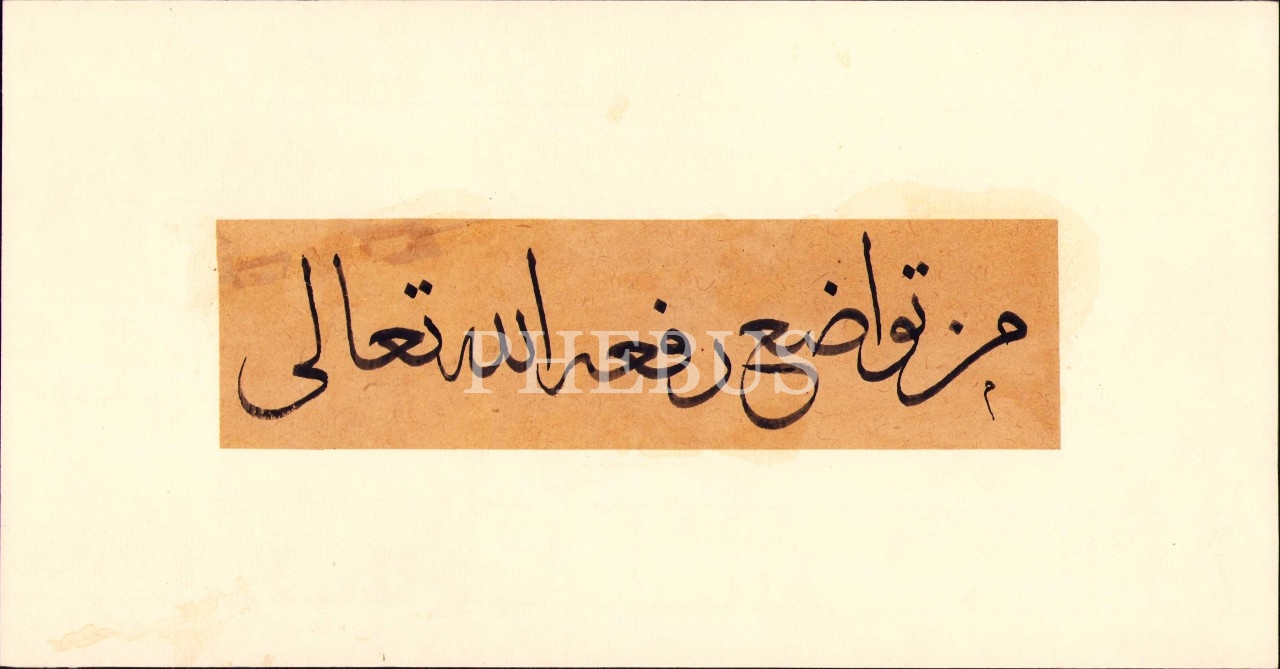 من تواضع رفعه الله تعالى
م
PHEBUS